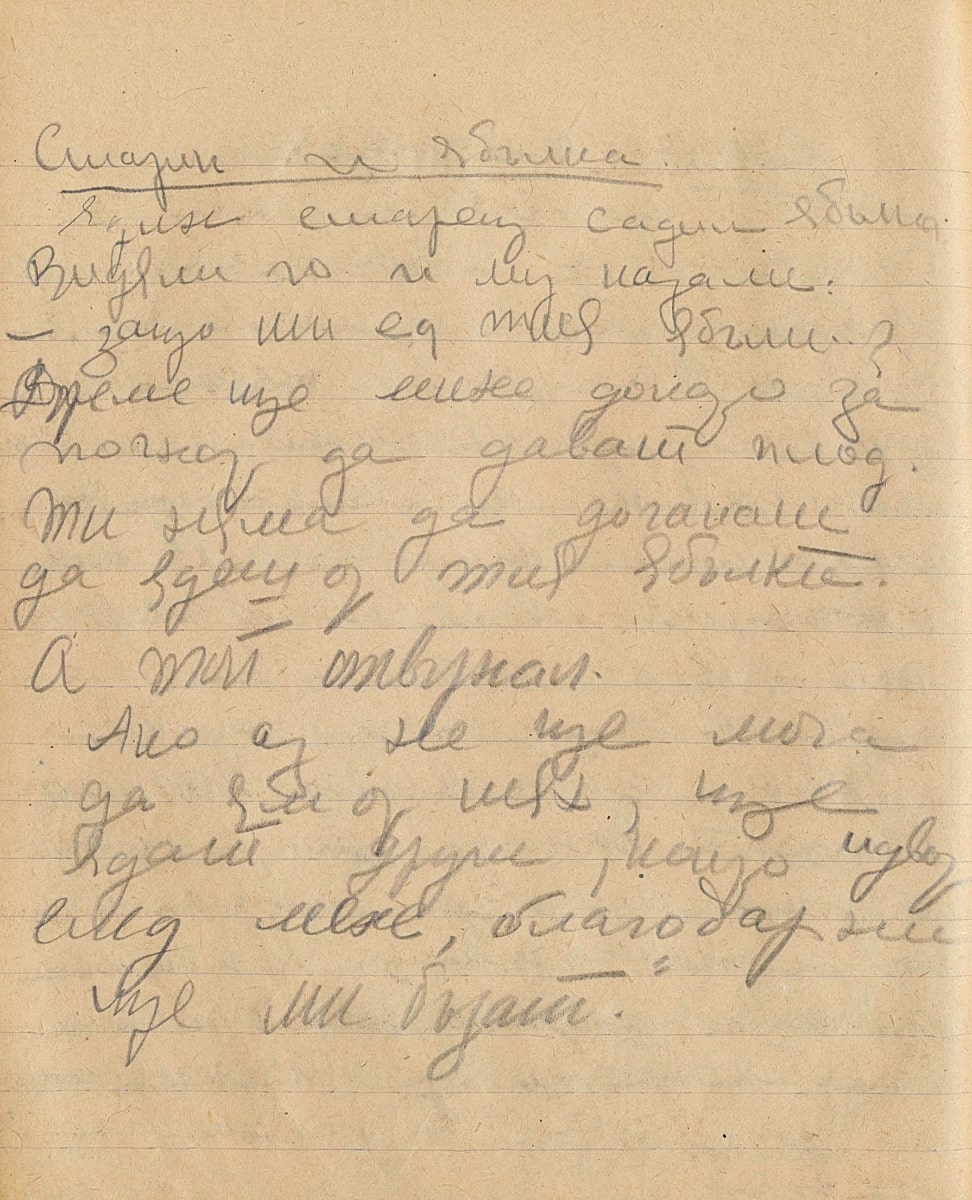 Старик и ябълка.
Един старец садил ябълки.
Видяли го и му казали:
– защо ти са тия ябълки?
Време ще мине докато за
почнат да дават плод.
Ти няма да доганаш
да ядеш от тия ябълки.
А той отвърнал.
Ако аз не ще мога
да ям от тях, ще
ядат други, които идват
след мене, благодарни
ще ми бъдат.